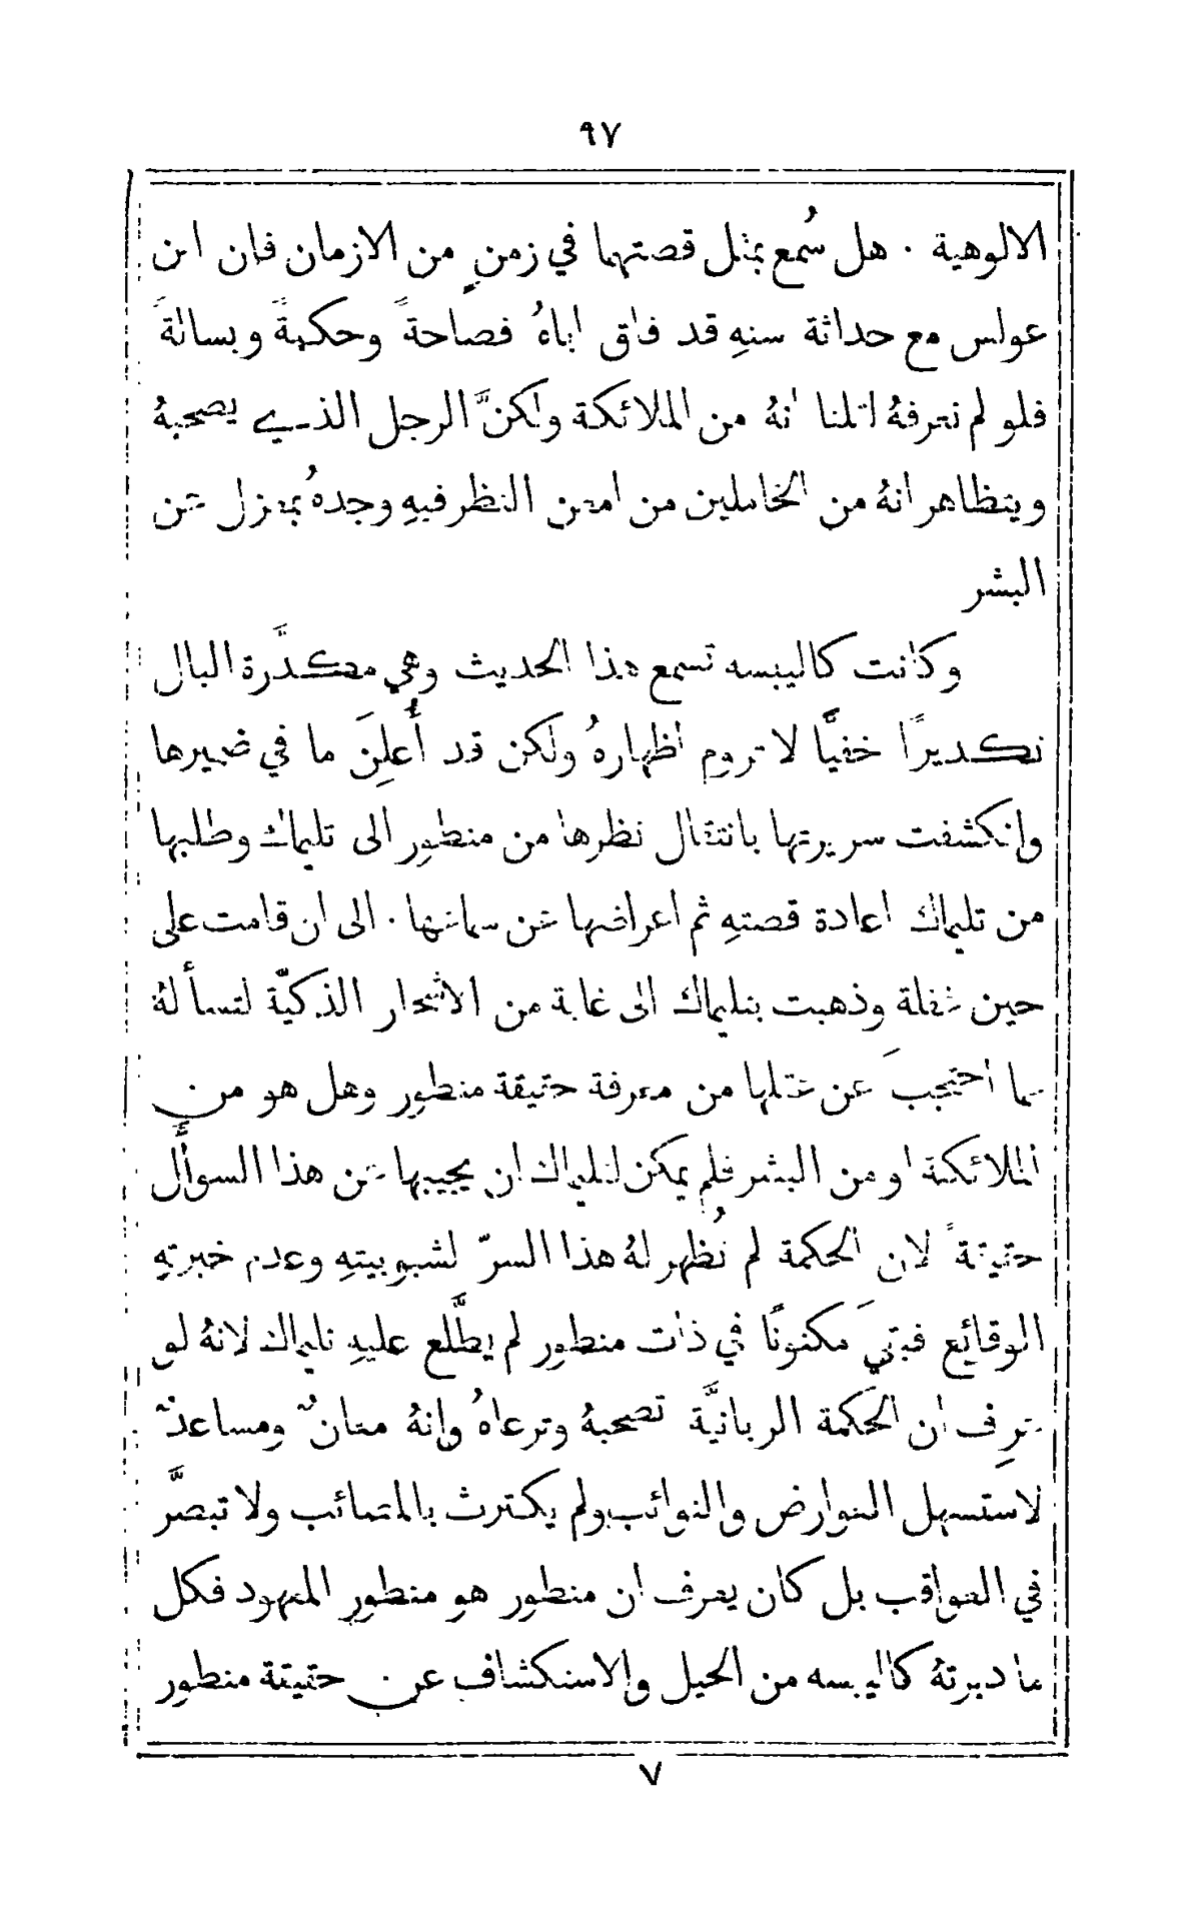 ٩٧
الالوهية . هل سُمع بمثل قصتها في زمنٍ من الازمان فان ابن
عولس مع حداثة سنهِ قد فاق اباهُ فصاحةً وحكمةً وبسالةً
فلو لم نعرفهُ لقلنا انهُ من الملائكة ولكنَّ الرجل الذي يصحبهُ
ويتظاهر انهُ من الخاملين من امعن النظر فيهِ وجدهُ بمعزل عن
البشر
وكانت كاليبسه تسمع هذا الحديث وهي مكدَّرة البال
تكديرًا خفيًّا لا تروم اظهارهُ ولكن قد أُعلِنَ ما في ضميرها
وانكشفت سريرتها بانتقال نظرها من منطور الى تليماك وطلبها
من تليماك اعادة قصتهِ ثم اعراضها عن سماعها . الى ان قامت على
حين غفلة وذهبت بتليماك الى غابة من الاشجار الذكيَّة لتسألهُ
عما احتجبَ عن عقلها من معرفة حقيقة منطور وهل هو من
الملائكة او من البشر فلم يمكن لتليماك ان يجيبها عن هذا السوأَل
حقيقةً لان الحكمة لم تُظهر لهُ هذا السرّ لشبوبيتهِ وعدم خبرتهِ
الوقائع فبقيَ مكنونًا في ذات منطور لم يطَّلع عليهِ تليماك لانهُ لو
عرِف ان الحَكمة الربانيَّة تصحبهُ وترعاهُ وانهُ معانٌ ومساعدٌ
لاستسهل العوارض والنوائب ولم يكترث بالمصائب ولا تبصَّر
في العواقب بل كان يعرف ان منطور هو منطور المعهود فكل
ما دبرتهُ كاليبسه من الحيل والاستكشاف عن حقيقة منطور
٧